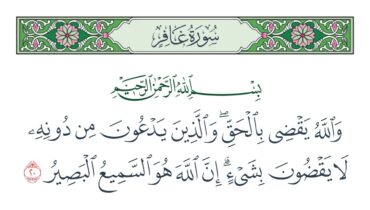 سُورَةُ غَافِرٍ
بِسْمِ اللَّهِ الرَّحْمَٰنِ الرَّحِيمِ
وَاللَّهُ يَقْضِي بِالْحَقِّ ۖ وَالَّذِينَ يَدْعُونَ مِن دُونِهِۦ
لَا يَقْضُونَ بِشَيْءٍ ۗ إِنَّ اللَّهَ هُوَ السَّمِيعُ الْبَصِيرُ ٢٠